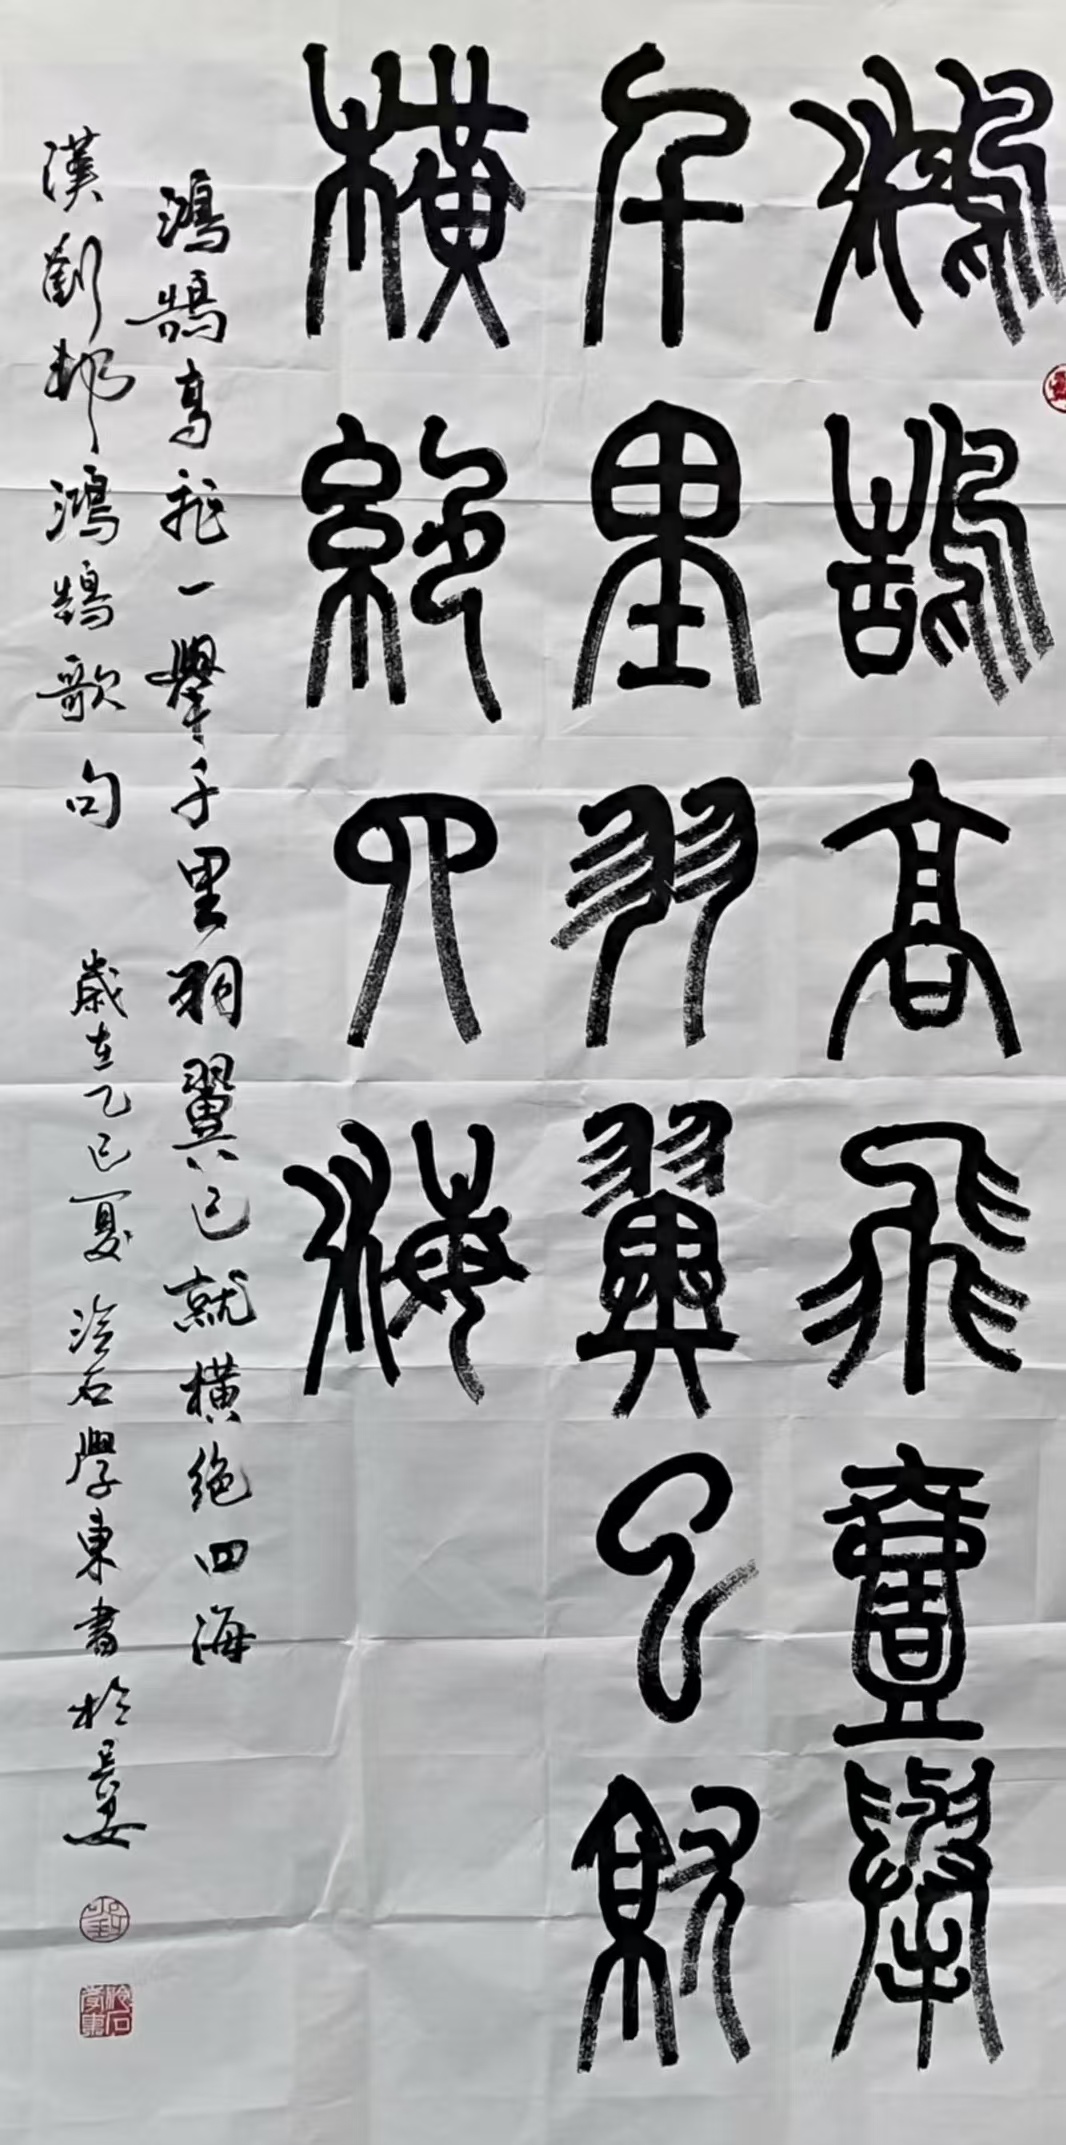 鴻鵠高飛壹舉
千里羽翼已就
橫絕四海
鴻鵠高飛一舉千里羽翼已就橫絕四海
漢劉邦鴻鵠歌句 歲在乙巳夏 泠石學東書於長安